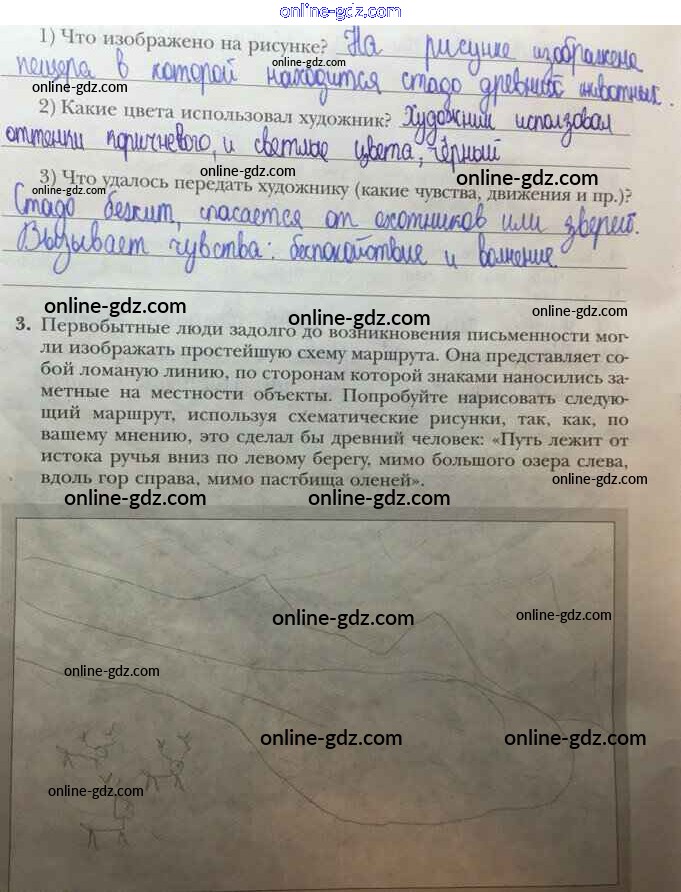 online-gdz.com
1) Что изображено на рисунке? На рисунке изображена
пещера в которой находится стадо древних животных.
online-gdz.com
online-gdz.com
2) Какие цвета использовал художник? Художник исползовал
оттенки коричневого, и светлые цвета, чёрный
online-gdz.com
online-gdz.com
online-gdz.com
3) Что удалось передать художнику (какие чувства, движения и пр.)?
Стадо бежит, спасается от охотников или зверей.
Вызывает чувства: беспокойствие и волнение
online-gdz.com
online-gdz.com
online-gdz.com
3. Первобытные люди задолго до возникновения письменности мог-
ли изображать простейшую схему маршрута. Она представляет со-
бой ломаную линию, по сторонам которой знаками наносились за-
метные на местности объекты. Попробуйте нарисовать следую-
щий маршрут, используя схематические рисунки, так, как, по
вашему мнению, это сделал бы древний человек: «Путь лежит от
истока ручья вниз по левому берегу, мимо большого озера слева,
вдоль гор справа, мимо пастбища оленей».
online-gdz.com
online-gdz.com
online-gdz.com
online-gdz.com
online-gdz.com
online-gdz.com
online-gdz.com
online-gdz.com
online-gdz.com
online-gdz.com